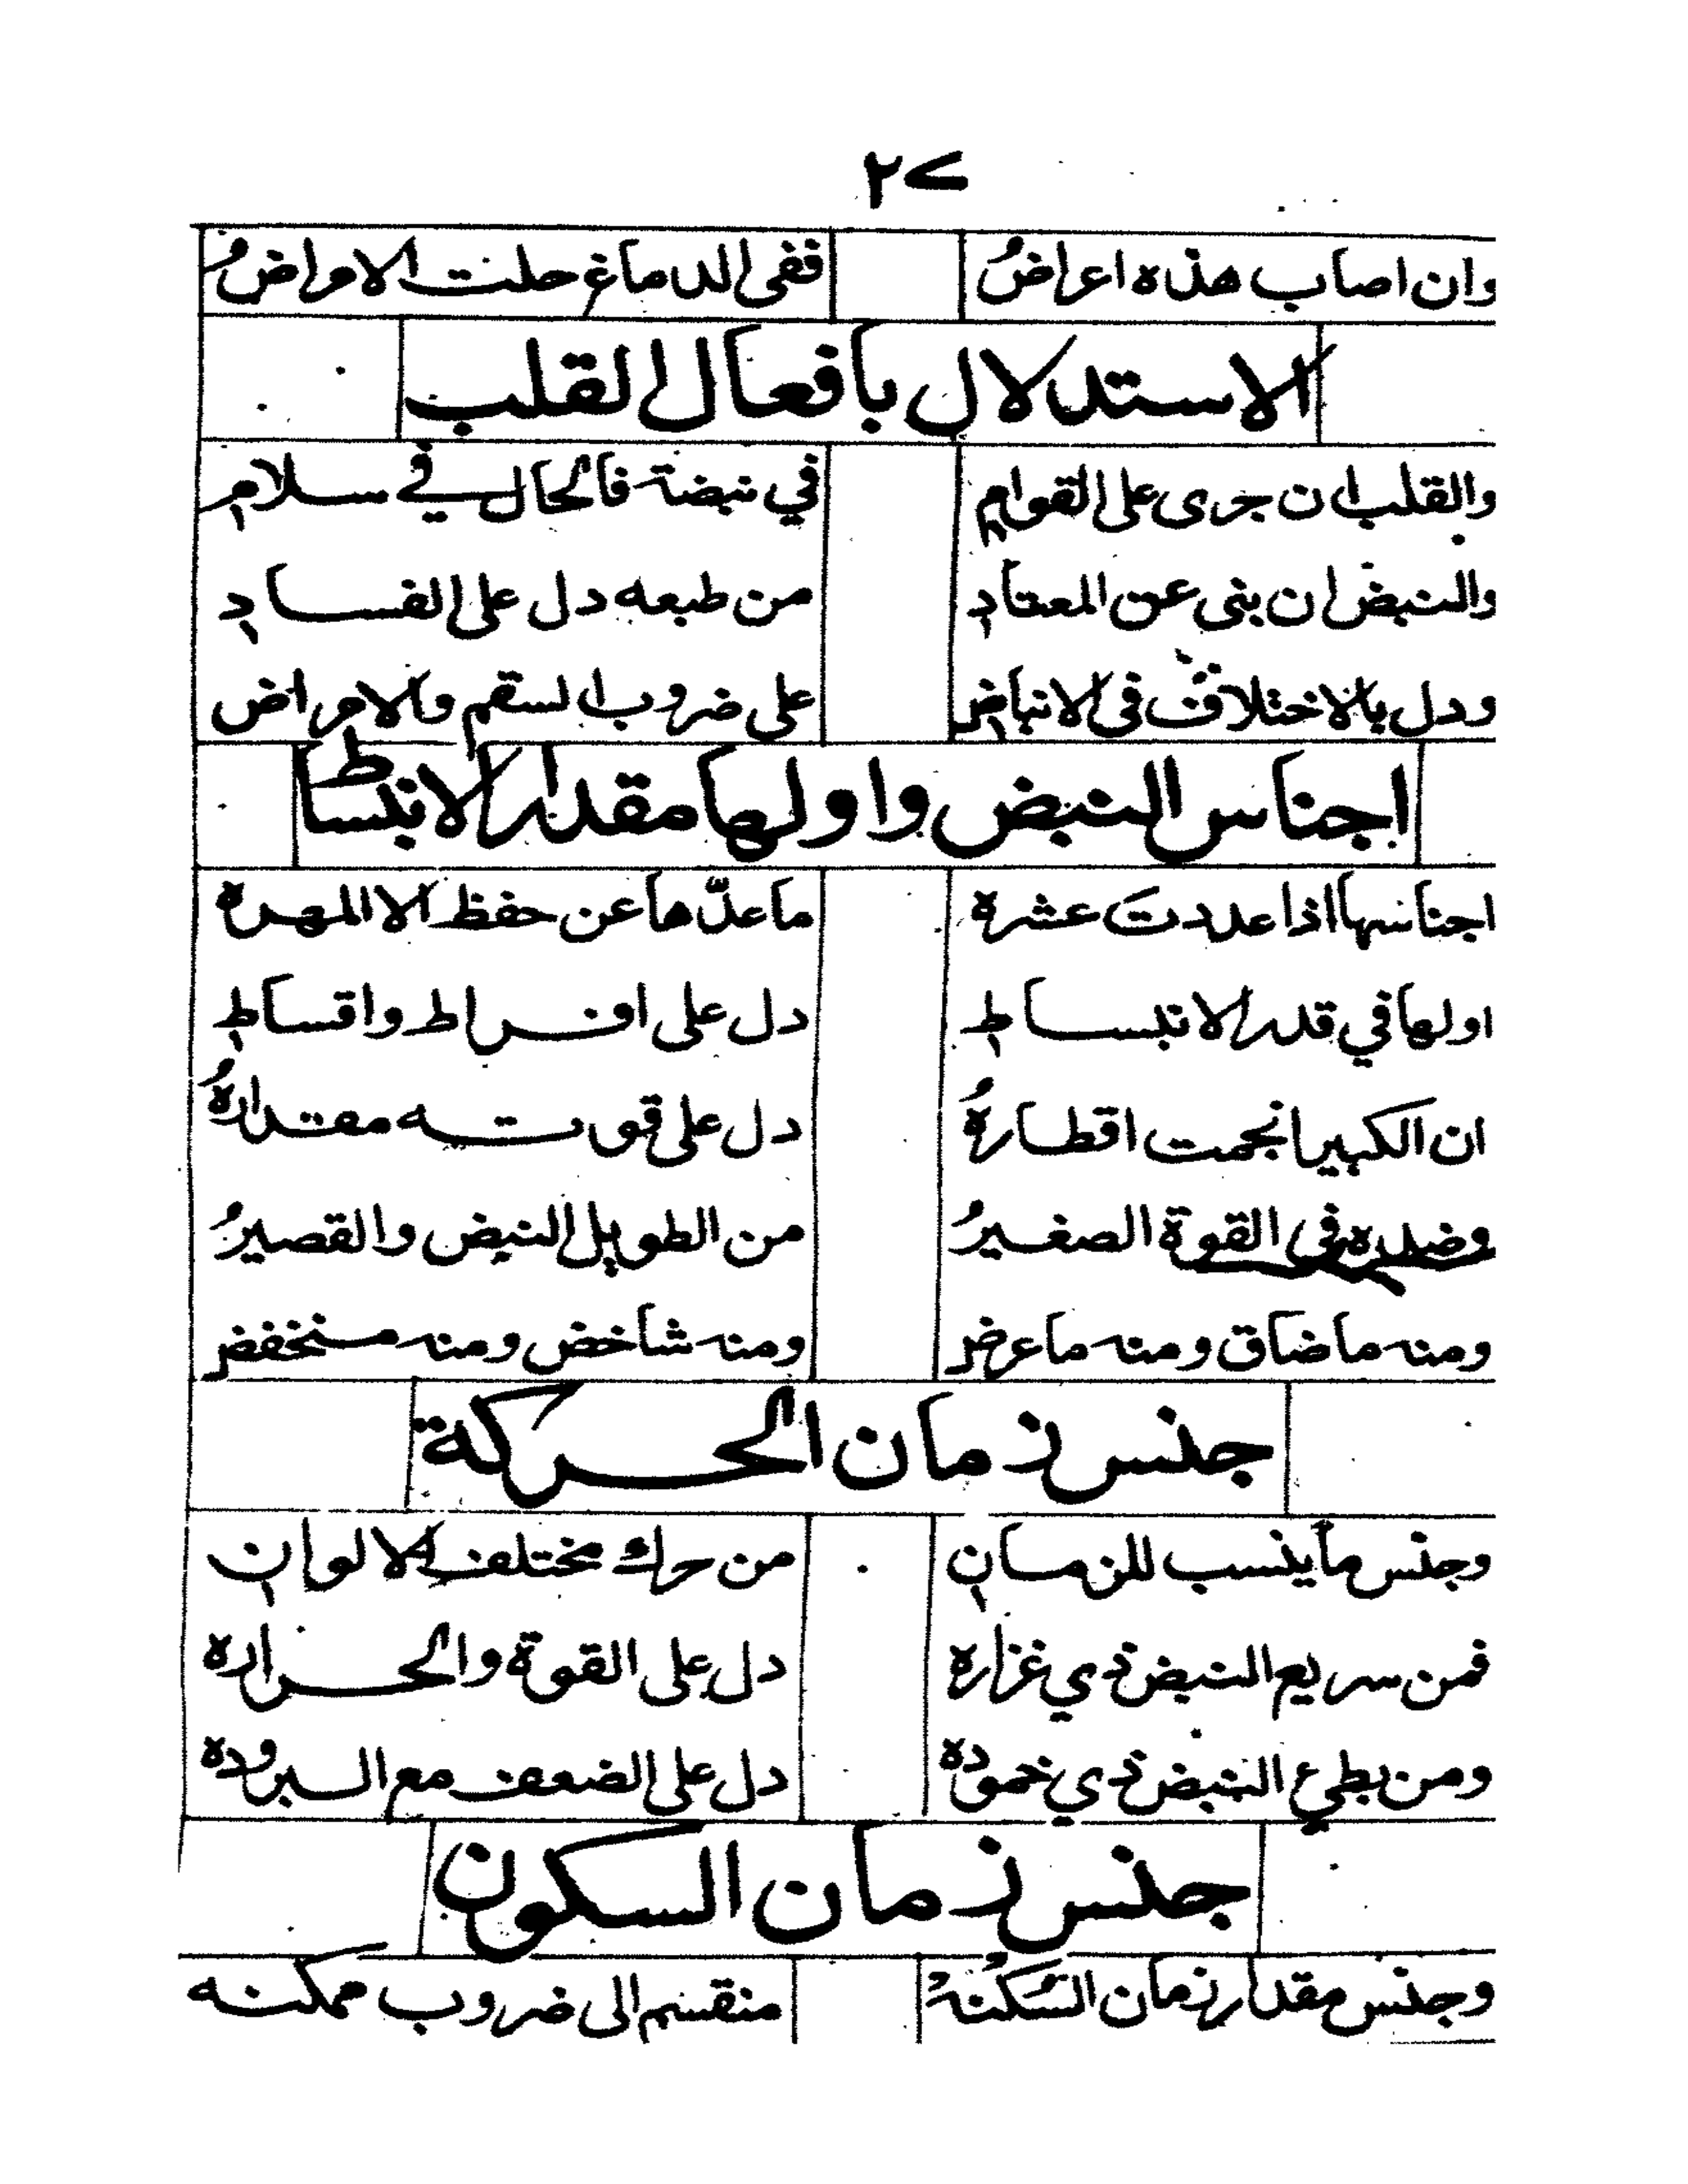 ٢<
وان اصاب هذه اعراضُ ففى الدماغ حلت الامراضُ
الاستدلال بافعال القلب
والقلب ان جرى على القوامِ في نبضة فالحال في سلامِ
والنبض ان بنى عن المعتادِ من طبعه دل على الفسادِ
ودل بالاختلاف فى الانباضِ على ضروب السقم والامراض
اجناس النبض واولها مقدار الانبساط
اجناسها اذا عددت عشرة ماعدّها عن حفظ الا المهره
اولها في قدر الانبساطِ دل على افراط واقساطِ
ان الكبير انجمت اقطارهُ دل على قوته مقدارهُ
وضده فى القوة الصغيرُ من الطويل النبض والقصيرُ
ومنه ما ضاق ومنه ما عرض ومنه شاخض ومنه منخفض
جنس زمان الحركة
وجنس ما ينسب للزمانِ من حرك مختلف الالوانِ
فمن سريع النبض ذي غزاره دل على القوة والحراره
ومن بطيء النبض ذي خموده دل على الضعف مع البروده
جنس زمان السكون
وجنس مقدار زمان السَكنهْ منقسم الى ضروب ممكنه